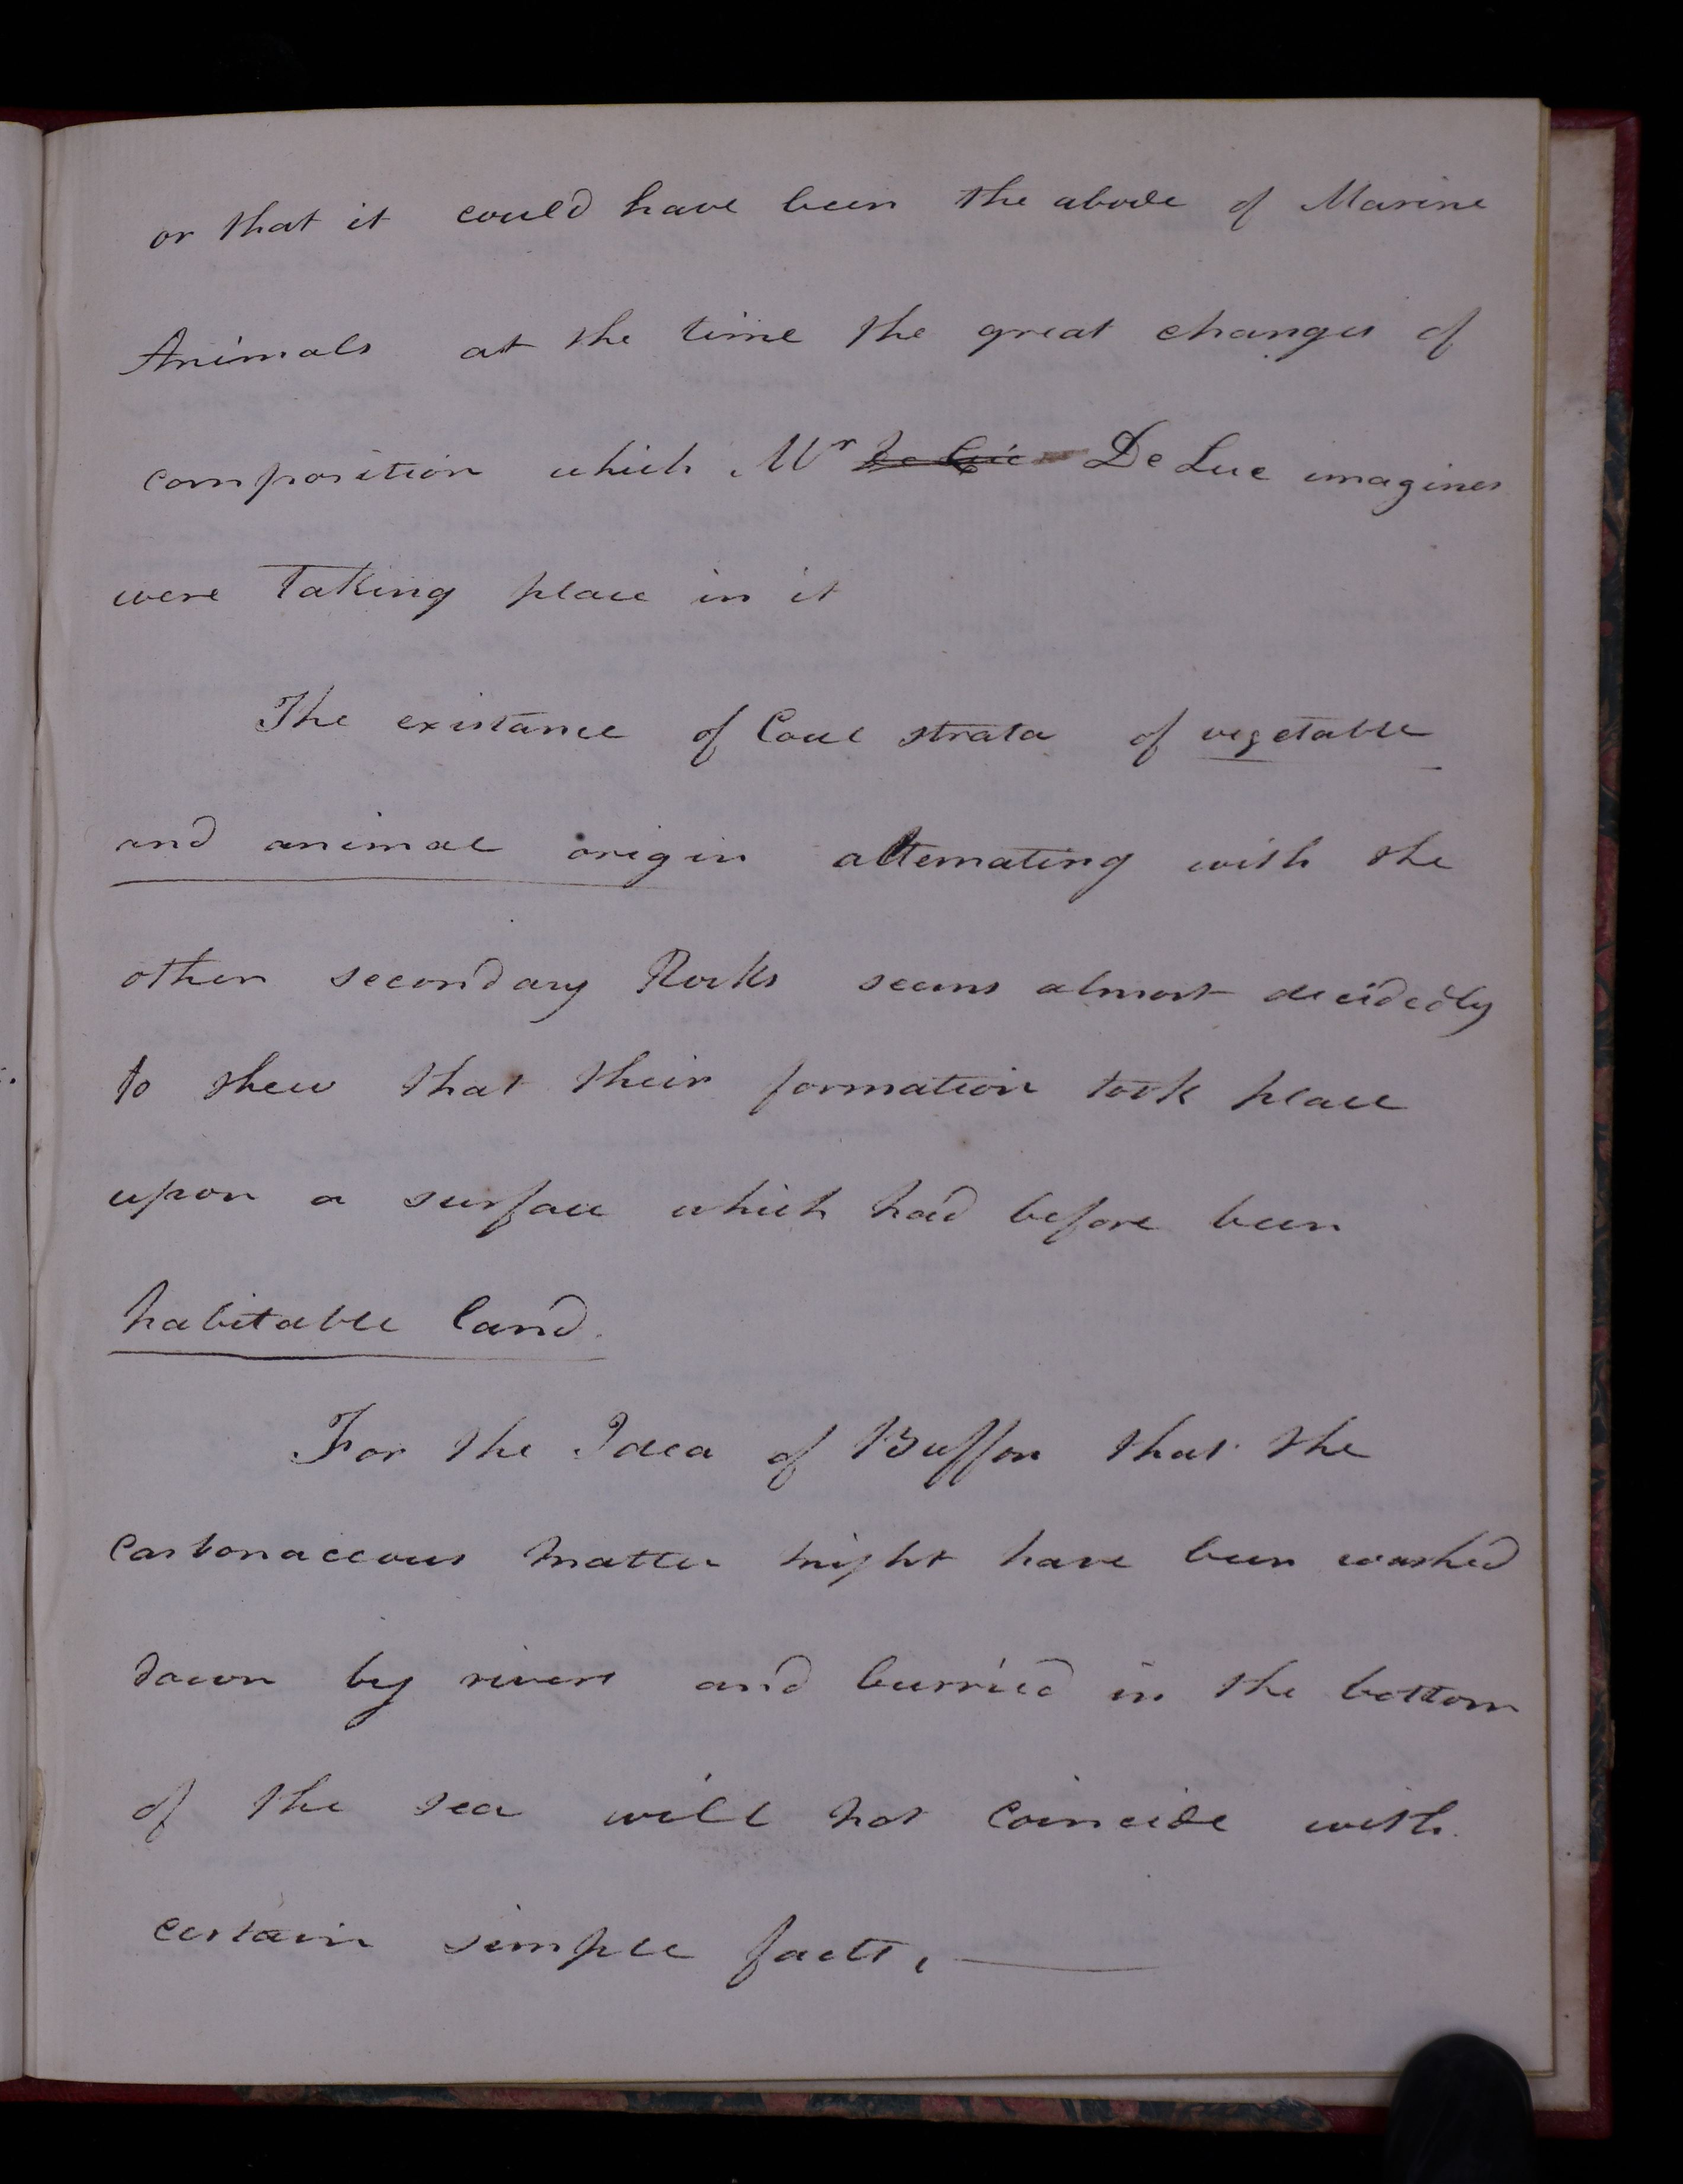 or that it could have been the abode of Marine
Animals at the time the great changes of
composition which Mr De Luc imagines
were taking place in it
The existance of Coal strata of vegetable
and animal origin alternating with the
other secondary Rocks seems almost decidedly
to shew that their formation took place
upon a surface which had before been
habitable land.
For the Idea of Buffon that the
Carbonaceous matter might have been washed
down by rivers and burried in the bottom
of the sea will not Coincide with
certain simple facts, —